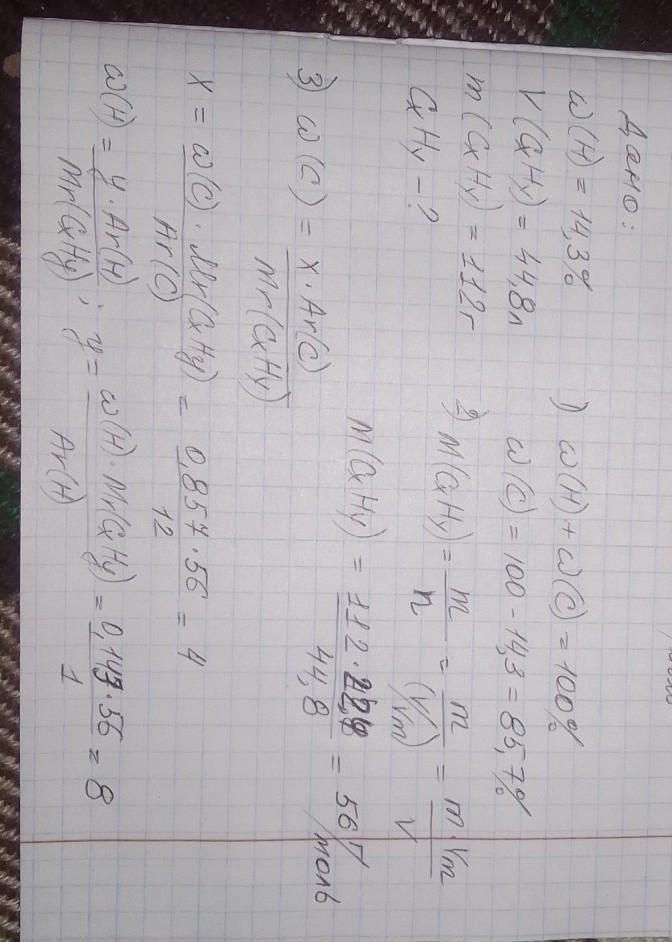 Дано:
ω(H) = 14,3%
V(CxHy) = 44,8л
m(CxHy) = 112г
CxHy – ?
1) ω(H) + ω(C) = 100%
ω(C) = 100 - 14,3 = 85,7%
2) M(CxHy) = m/n = m/(V/Vm) = m·Vm/V
M(CxHy) = 112·22,4/44,8 = 56 г/моль
3) ω(C) = x·Ar(C)/Mr(CxHy)
x = ω(C)·Mr(CxHy)/Ar(C) = 0,857·56/12 = 4
ω(H) = y·Ar(H)/Mr(CxHy); y = ω(H)·Mr(CxHy)/Ar(H) = 0,143·56/1 = 8